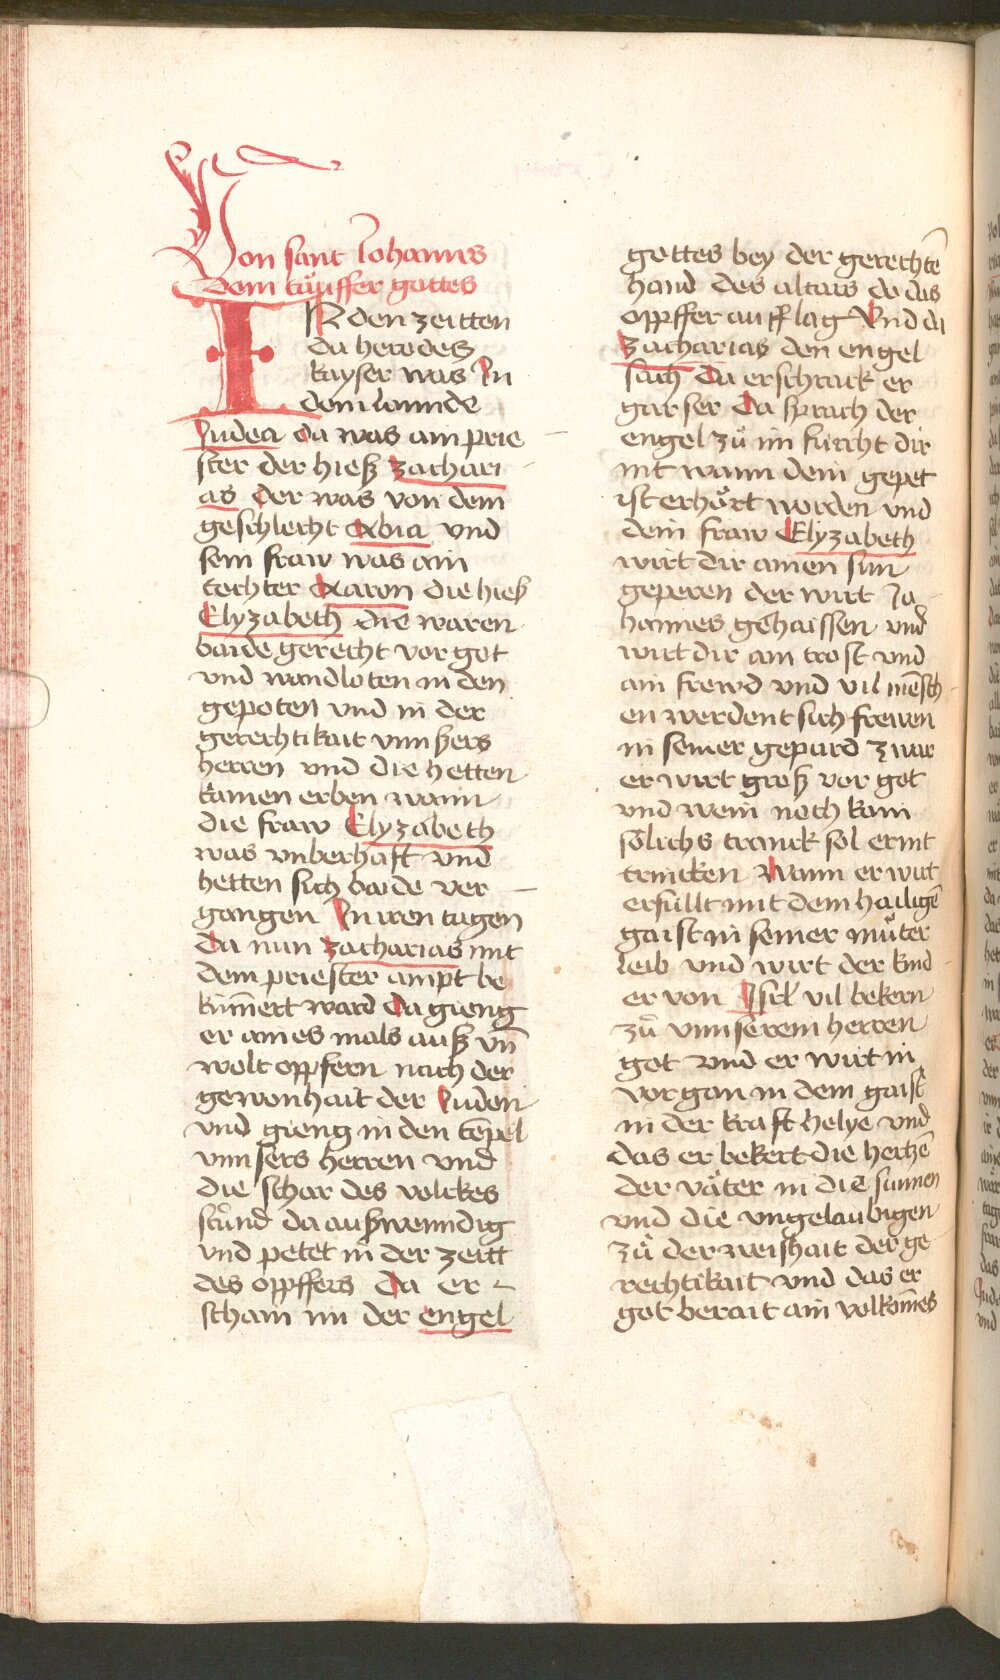 Von sant Johanns
dem tauͤffer gottes
IN den zeitten
da herodes
kayser was Jn
dem lannde
Judea da was ain prie
ster der hieß zachari
as Der was von dem
geschlecht Abia vnd
sein fraw was ain
tochter Aaron die hieß
Elyzabeth die waren
baide gerecht vor got
vnd wandloten in den
gepoten vnd in der
gerechtikait vnnsers
herren vnd die hetten
kainen erben wann
die fraw Elyzabeth
was vnberhaft vnd
hetten sich baide ver
gangen Jn iren tagen
Da nun zacharias mit
dem priester ampt be
kum̄ert ward Da gieng
er aines mals auß vn̄
wolt opffern nach der
gewonhait der Juden
vnd gieng in den tēpel
vnnsers herren vnd
die schar des volckes
stůnd da außwenndig
vnd petet in der zeitt
des opffers Da er
schain im der engel
gottes bey der gerechtē
hand des altars da das
opffer auff lag Vnd da
zacharias den engel
sach Da erschrack er
gar ser Da sprach der
engel zů im fürcht dir
nit wann dein gepet
ist erhört worden vnd
dein fraw Elyzabeth
wirt dir ainen sun
geperen der wirt Jo
hannes gehaissen vnd
wirt dir ain trost vnd
ain frewd vnd vil mēsch
en werdent sich frewen
in seiner gepurd zwar
er wirt groß vor got
vnd wein noch kain
sölichs tranck sol er nit
trincken Wann er wirt
erfüllt mit dem hailigē
gaist in seiner můter
leib vnd wirt der kind
er von Jsrl̄ vil bekern
zů vnnserem herren
got vnd er wirt in
vor gan in dem gaist
in der kraft helye vnd
das er bekert die hertzē
der väter in die sunnen
vnd die vngelaubigen
zů der weishait der ge
rechtikait vnd das er
got berait ain volkom̄es